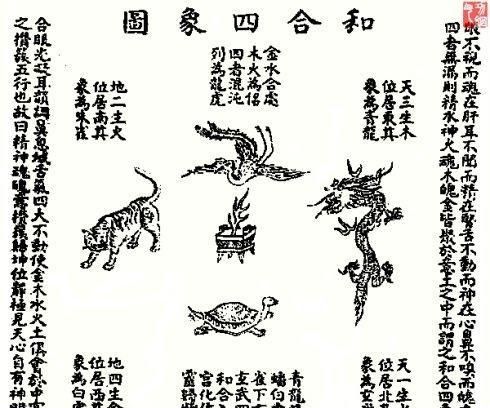 和合四象圖
眼不視而魂在肝耳不聞而精在腎舌不動而神在心鼻不嗅而魄
四者無漏則精水神火魂木魄金皆聚於意土之中而謂之和合四
天三生木
位居東其
象為青龍
金水合處
木火為侶
四者混沌
列為龍虎
地二生火
位居南其
象為朱雀
天一生
位居北
象為玄
青龍
雀下
玄武四
和合
宮化作
地四生金
位居西
象為白
合眼光凝耳韻調鼻息緘舌氣四大不動使金木水火土俱會於中
之攢簇五行也故曰精神魂魄意攢簇歸坤位靜極見天心自有神明